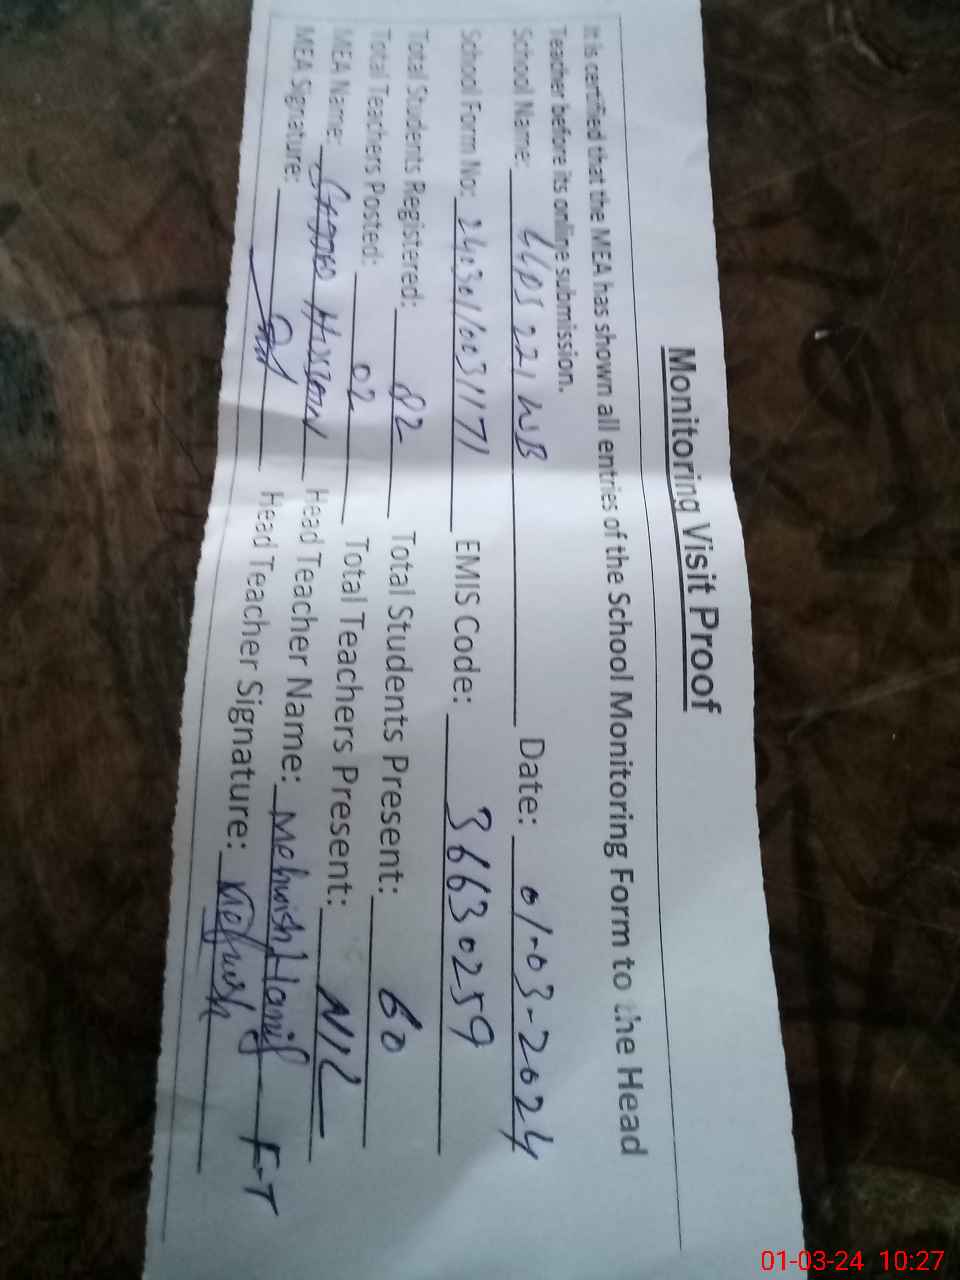 Monitoring Visit Proof
It is certified that the MEA has shown all entries of the School Monitoring Form to the Head
Teacher before its online submission.
School Name: GGPS 221 WB Date: 01-03-2024
School Form No: 240301/0031171 EMIS Code: 36630259
Total Students Registered: 82 Total Students Present: 60
Total Teachers Posted: 02 Total Teachers Present: NIL
MEA Name: Hussain Head Teacher Name: Mehwish Hanif F-T
MEA Signature: Head Teacher Signature: Mehwish
01-03-24 10:27